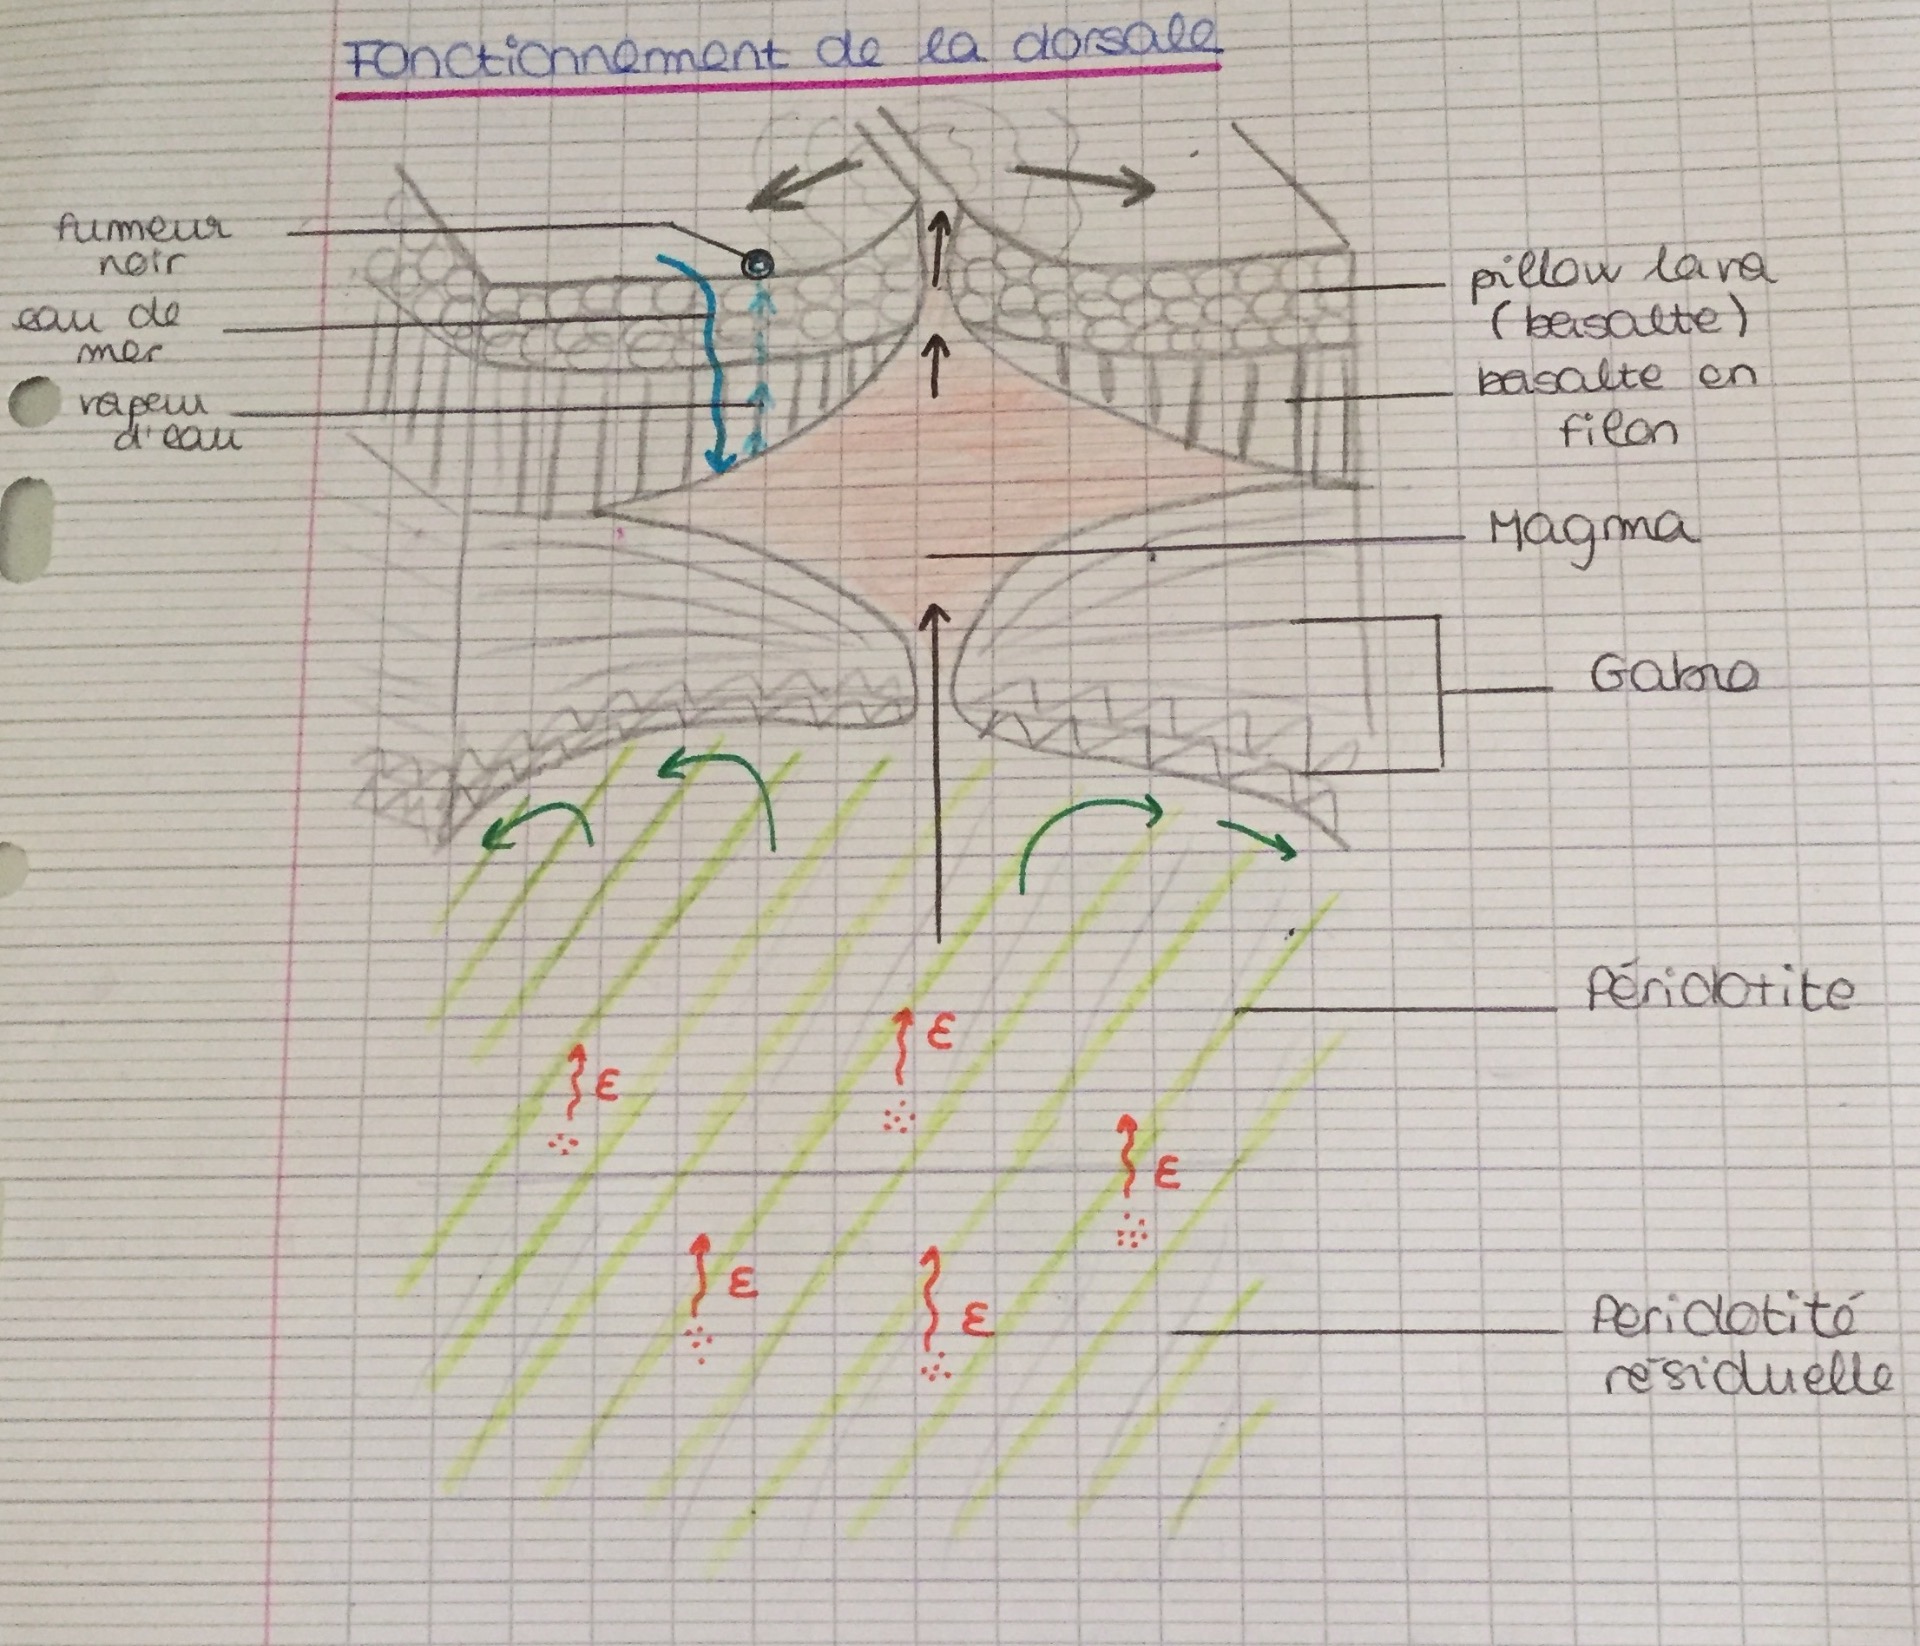 Fonctionnement de la dorsale
fumeur
noir
eau de
mer
vapeur
d'eau
pillow lava
(basalte)
basalte en
filon
Magma
Gabro
Péridotite
ε
ε
ε
ε
ε
Peridotité
résiduelle